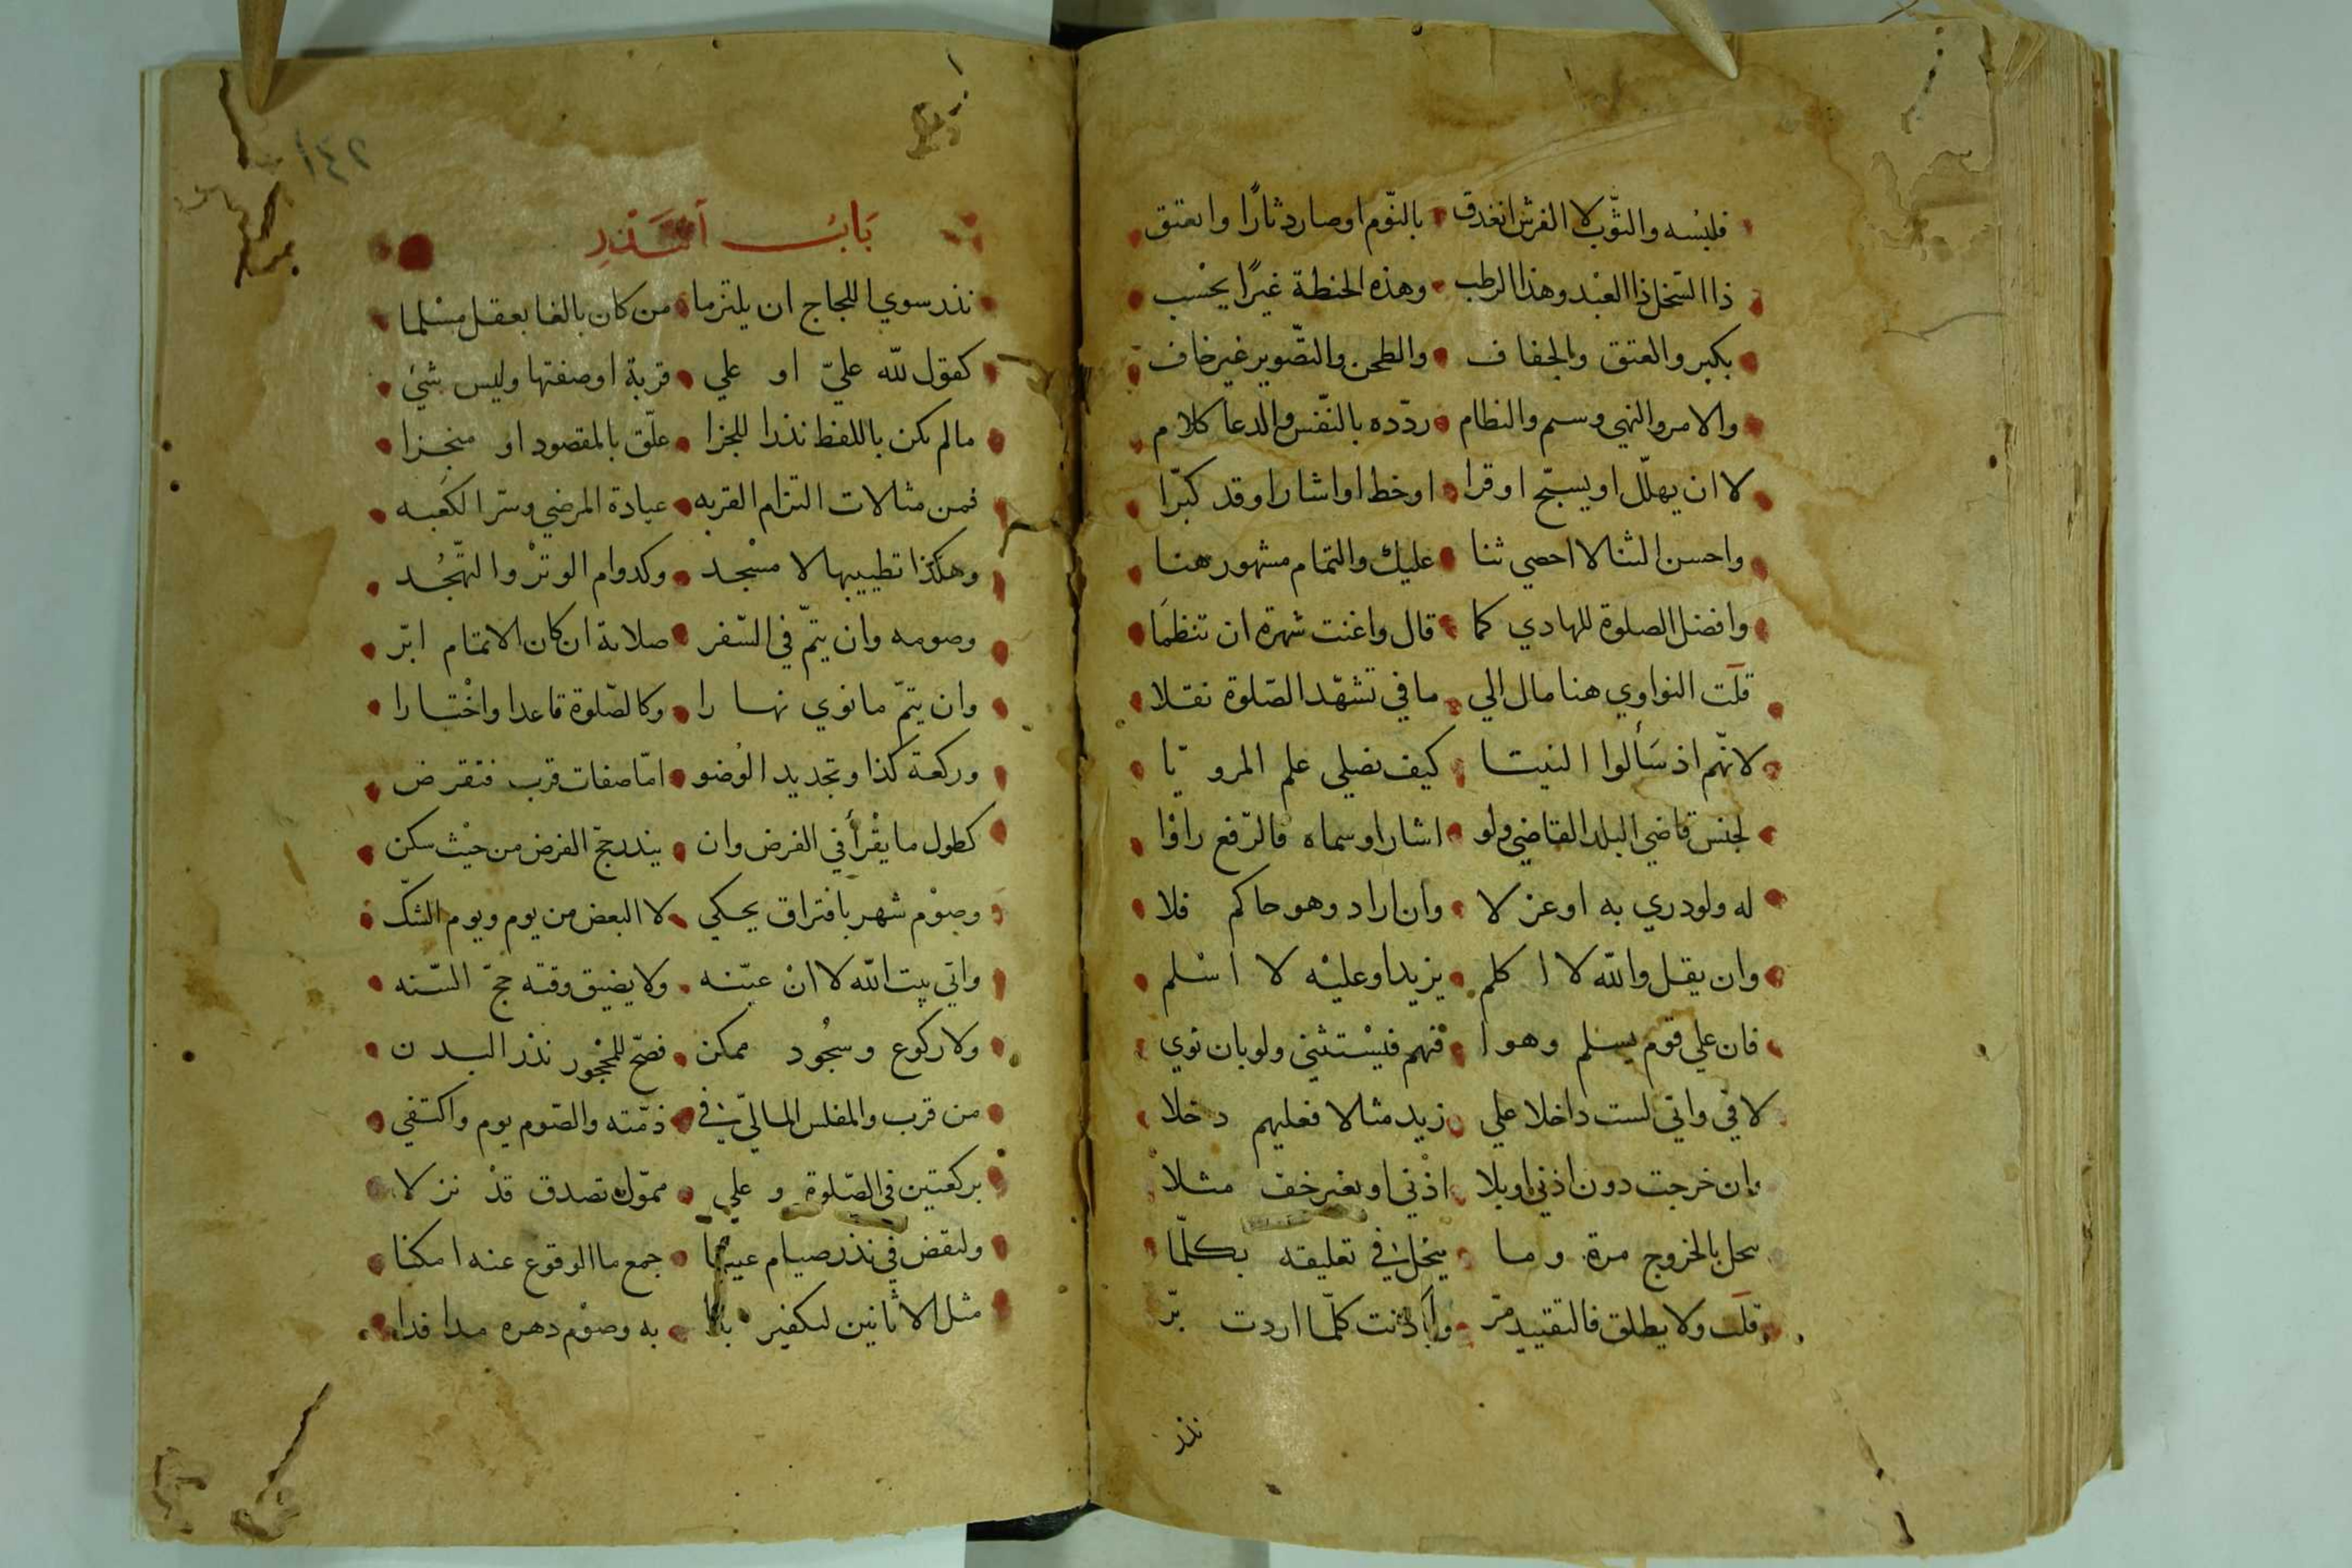 فلبسه والثوب لا الفرش انغدق بالنّوم اوصار دثارًا وانعتق
ذا السخل ذا العبد وهذا الرطب وهذه الحنطة غيرًا يحسب
بكبر والعتق والجفاف والطحن والتّصوير غير خاف
والامر والنهي وسم والنظام ردّده بالنّفس والدعا كلام
لا ان يهلّل او يسبّح او قرا او خط او اشار او قد كبّرا
واحسن الثنا لا احصي ثنا عليك والتمام مشهور هنا
وافضل الصلوة للهادي كما قال واغنت شهرة ان تنظمَا
قلت النواوي هنا مال الي ما في تشهّد الصّلوة نقلا
لانّهم اذ سَألوا النبيّا كيف نصلي علم المرويّا
لجنس قاضي البلد القاضي ولو اشار او سماه فالرّفع راوْا
له ولو دري به او عزلا وان اراد وهو حاكم فلا
وان يقل والله لا اكلم يزيد او عليْه لا اسْلم
فان علي قوم يسلم وهوا فهم فيسْتثني ولو بان نوي
لا في واني لست داخلا علي زيد مثلا فعليهم دخلا
وان خرجت دون اذني او بلا اذْني او بغير خف مثلا
يحل بالخروج مرة وما ينحل في تعليقه بكلّما
قلت ولا يطلق فالتقييد مرّ واذنت كلّما اردت برّ
نذر
٢٤١
بَابُ النَّذرِ
نذر سوي اللجاج ان يلتزما من كان بالغا بعقل مسْلما
كقول لله عليّ او علي قربة او صفتها وليس شيْ
مالم يكن باللفظ نذرا للجزا علّق بالمقصود او منجزا
فمن مثالات التزام القربه عيادة المرضي وسترا لكَعبه
وهكذا تطييبها لا مسْجد وكدوام الوترْ والتهّجُد
وصومه وان يتمّ في السّفر صلاته ان كان الاتمام ابرّ
وان يتمّ ما نوي نهارا وكالصّلوة قاعدا واخْتارا
وركعة كذا وتجديد الوُضو امّا صفات قرب فتفرض
كطول ما يقْرأ في الفرض وان يندرجّ الفرض من حيْث سكن
وصوْم شهر بافتراق يحكي لا البعض من يوم ويوم الشكّ
واتي بيت الله لا ان عيّنه ولا يضيق وقته حجّ السّنه
ولا ركوع وسجُود ممكن فصحّ للمحْجور نذر البدن
من قرب والمفلس الماليّ في ذمّته والصّوم يوم واكتفي
بركعتين في الصّلوة وعلي مموّل تصدق قدْ نزلا
وليقض في نذر صيام عينا جمع ما الوقوع عنه امكنا
مثل الاثانين لتكفير بدا به وصوْم دهره مدا فدا